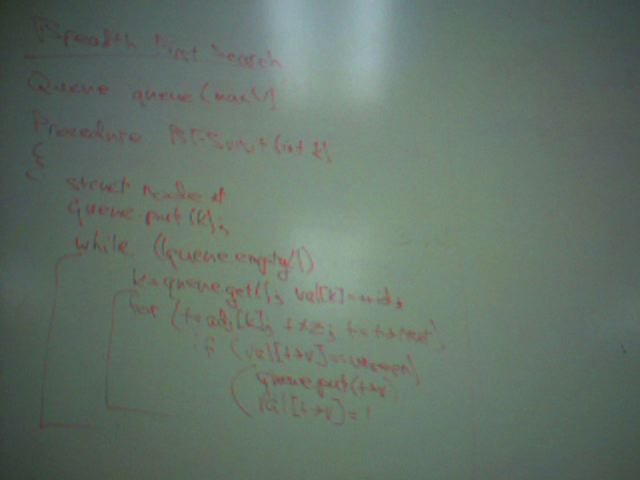 Breadth First Search
Queue queue (maxV)
Procedure BFS visit (int k)
{
struct node *t
queue.put (k);
while (!queue.empty())
k = queue.get(); val[k] = ++id;
for (t=adj[k]; t≠z; t=t→next)
if (val[t→v]==unseen)
queue.put(t→v)
val[t→v] = 1